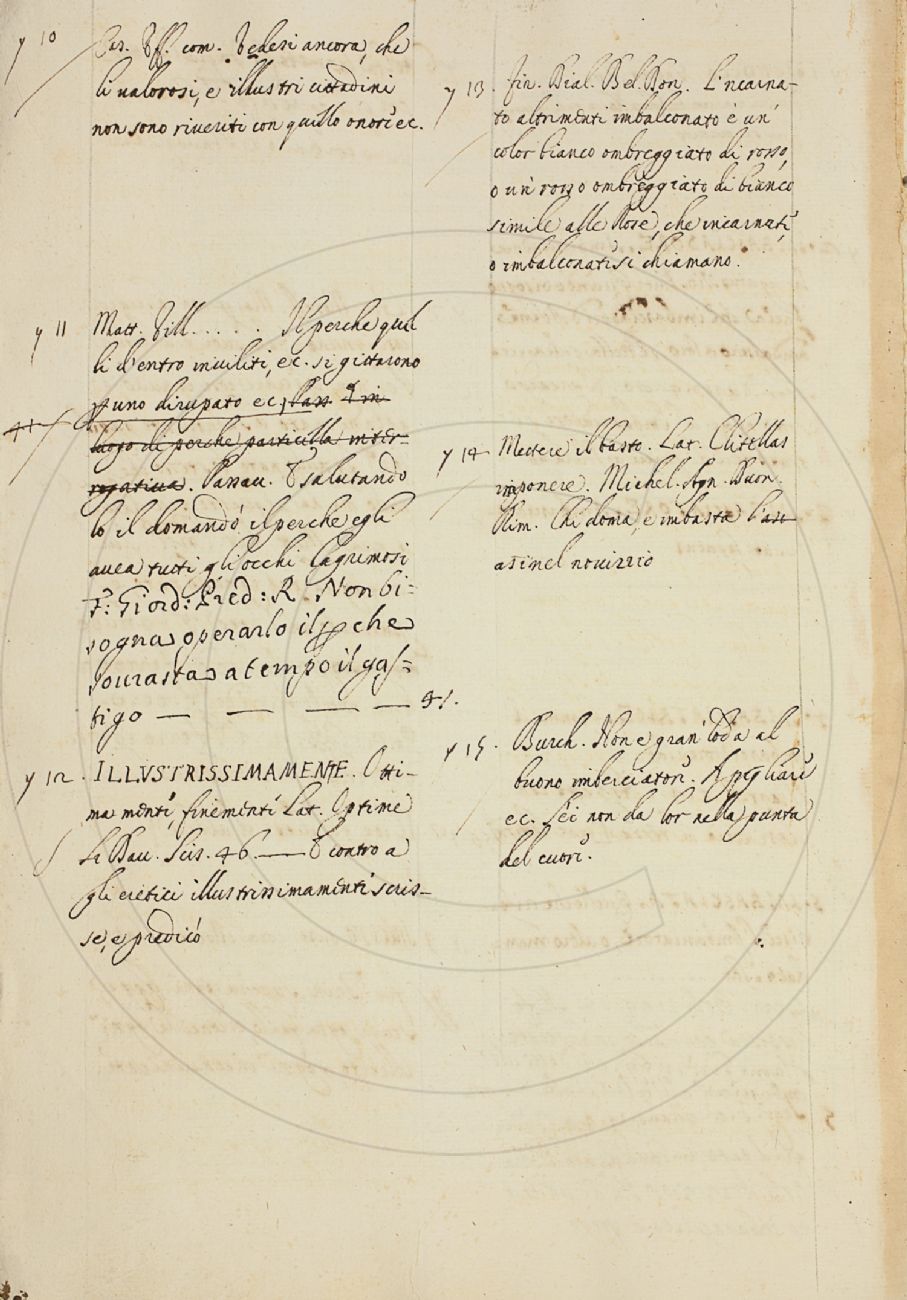 y 10 Cas. Uff. com. Vedesi ancora, che
li valorosi, e illustri cittadini
non sono riveriti con quello onore ec.
y 11 Matt. Vill. . . . . . Il perche quel
li d'entro inviliti, ec. si gittarono
uno dirupato ec.
luogo di perche particella inter-
rogativa. Passav. E salutando
lo il domandò il perche egli
avea tutti gli occhi lagrimosi
F: Giord: Pred: R. Non bi=
sogna operarlo il p che
sourasta a tempo il gas=
tigo — — — —
y 12. ILLVSTRISSIMAMENTE. Otti-
mamente, finemente Lat. Optime
But. Scis. 46. — E contro a
gli eretici illustrissimamente scris-
se, e predicò
y 13. fin. Dial. Bel. Don. L'incarna-
to altrimenti imbalconato è un
color bianco ombreggiato di rosso,
o un rosso ombreggiato di bianco
simile alle Rose, che incarnate,
o imbalconate si chiamano.
y 14 Mettere il basto. Lat. Clitellas
imponere. Michel. Agn. Buon.
Rim. Chi doma, e imbasta l'asi
asinel novizzio
y 15. Burch. Non e gran loda al
buono imberciatore. A pigliare
ec. Sei non da lor nella punta
del cuore.